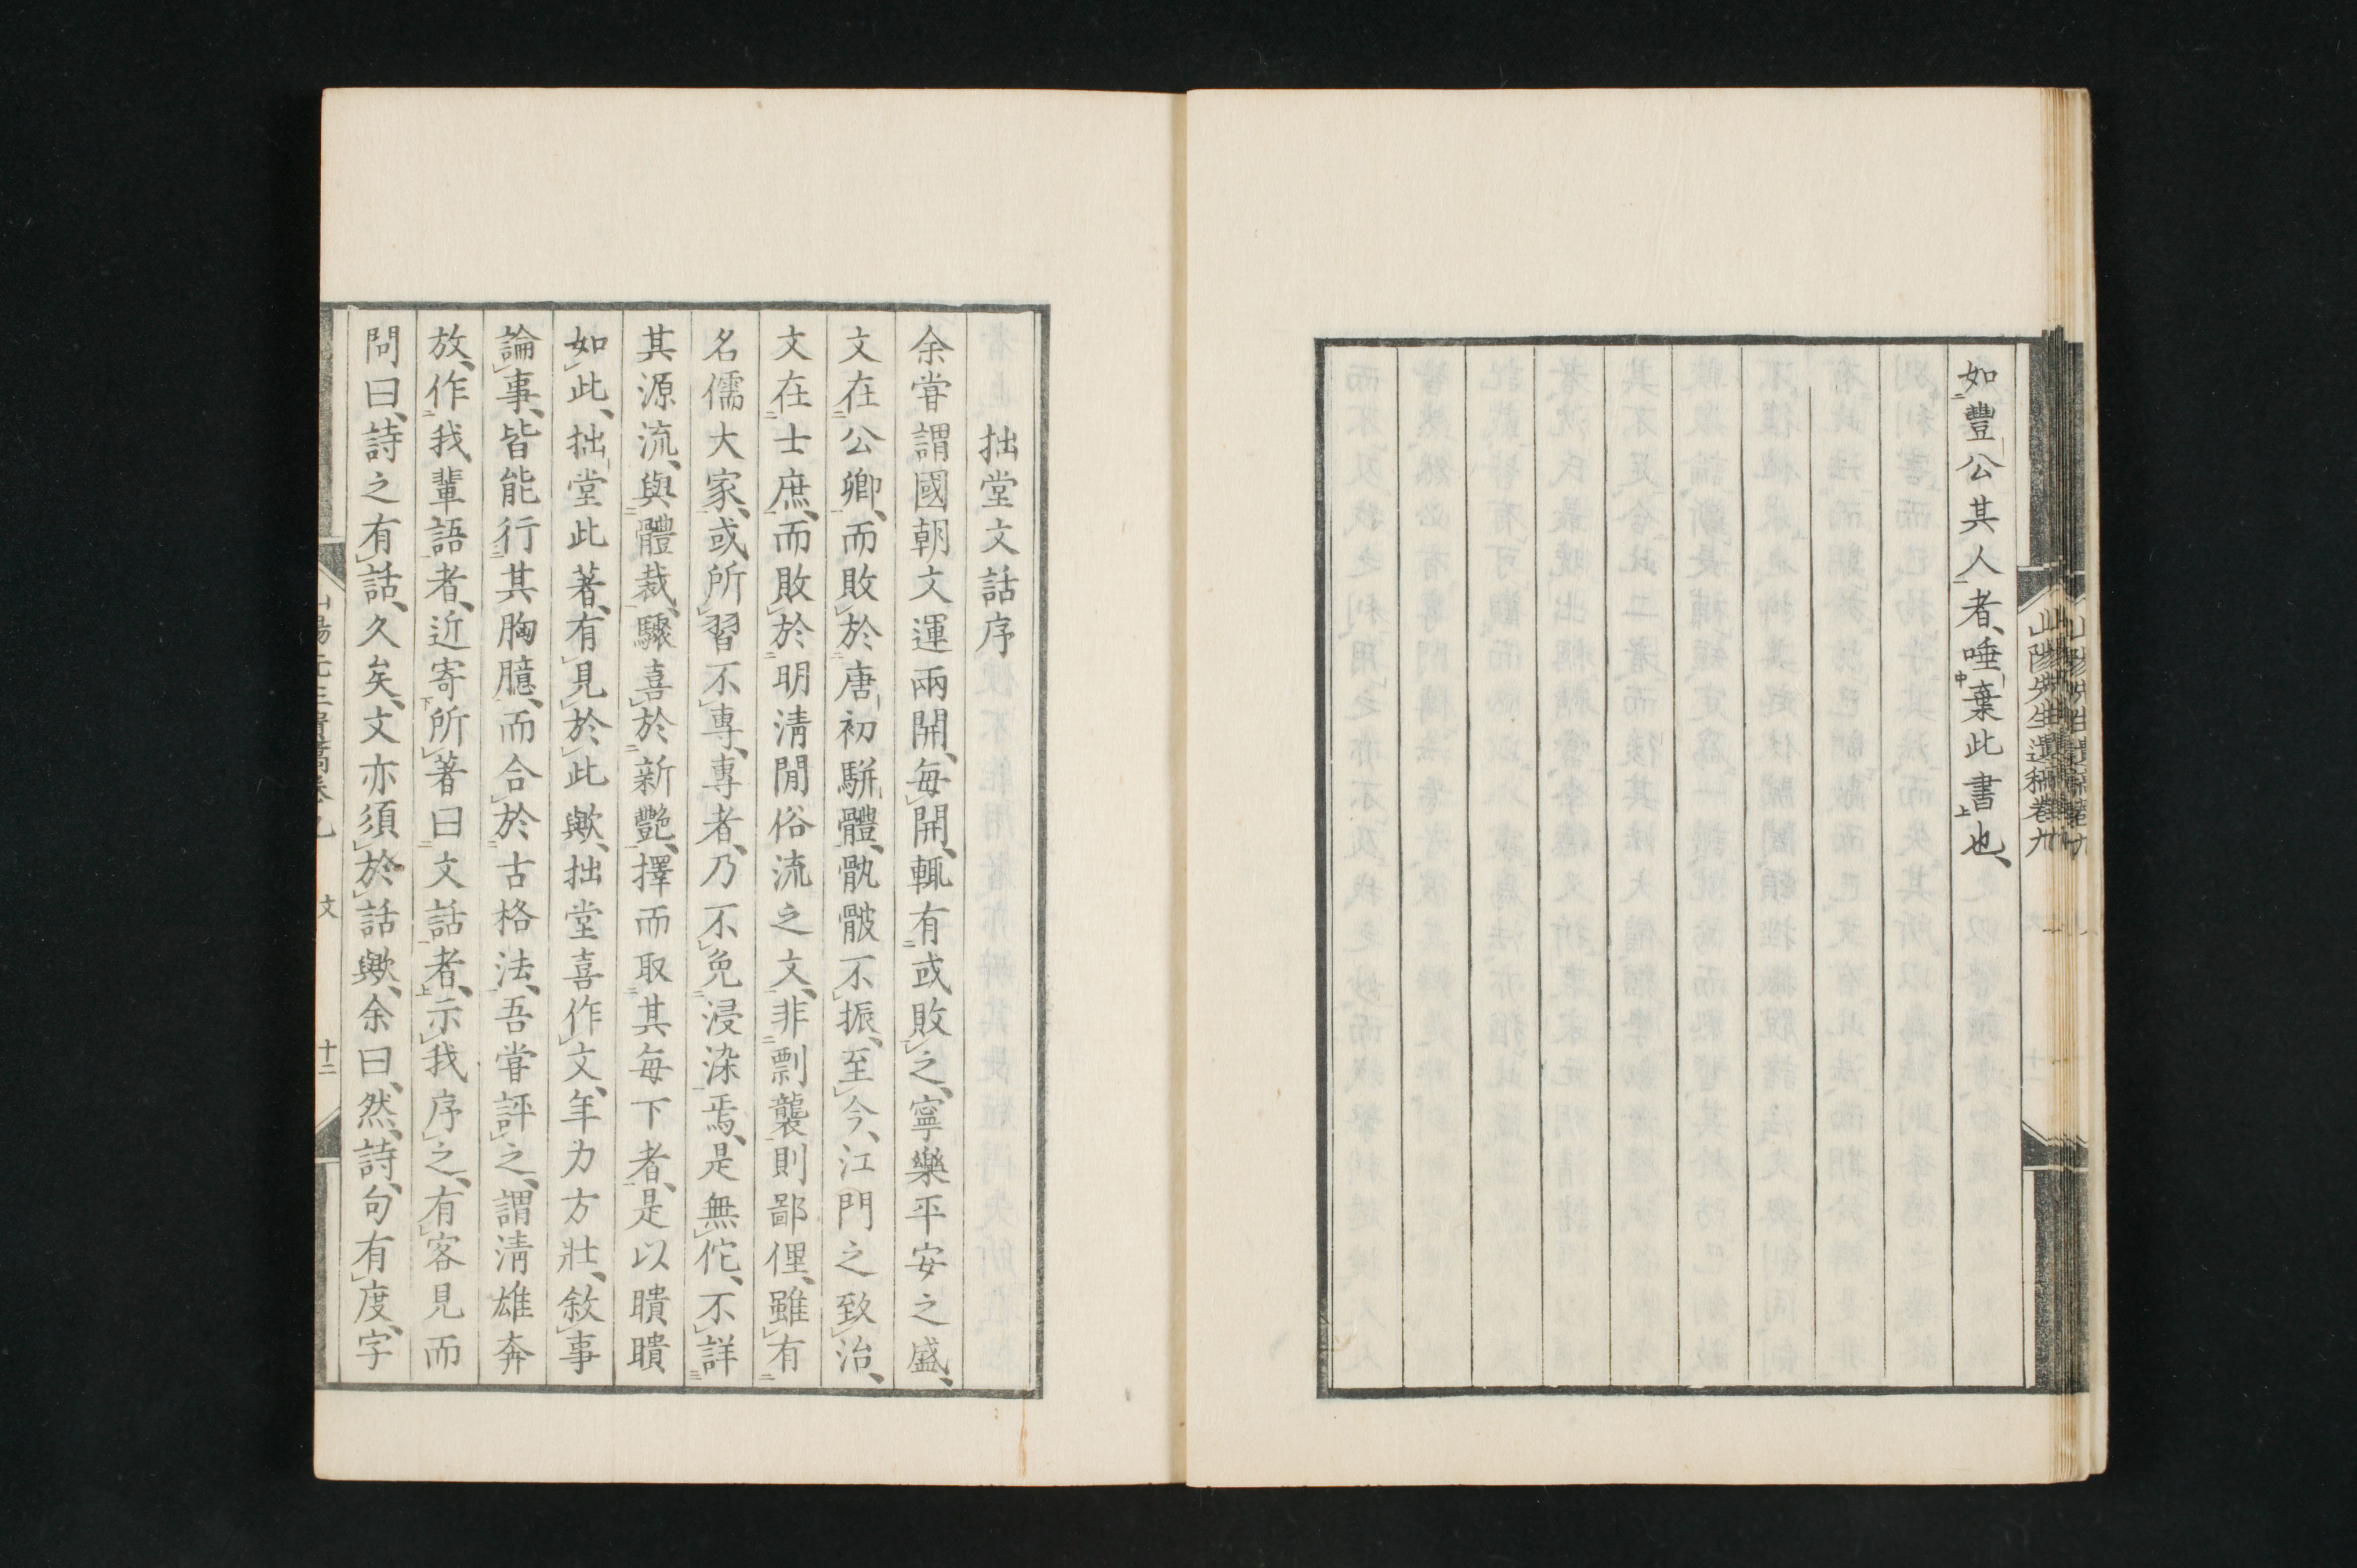 如豐公其人者、唾棄此書也、
山陽先生遺稿卷九
拙堂文話序
余甞謂國朝文運兩開、每開、輒有或敗之、寧樂平安之盛、
文在公卿、而敗於唐初駢體、骫骳不振、至今、江門之致治、
文在士庶、而敗於明淸閒俗流之文、非剽襲則鄙俚、雖有
名儒大家、或所習不專、專者、乃不免浸染焉、是無佗、不詳
其源流、與體裁、驟喜於新艷、擇而取其每下者、是以瞶瞶
如此、拙堂此著、有見於此歟、拙堂喜作文、年力方壯、敘事
論事、皆能行其胸臆、而合於古格法、吾甞評之、謂淸雄奔
放、作我輩語者、近寄所著曰文話者、示我序之、有客見而
問曰、詩之有話、久矣、文亦須於話歟、余曰、然、詩、句有度、字
文
十二